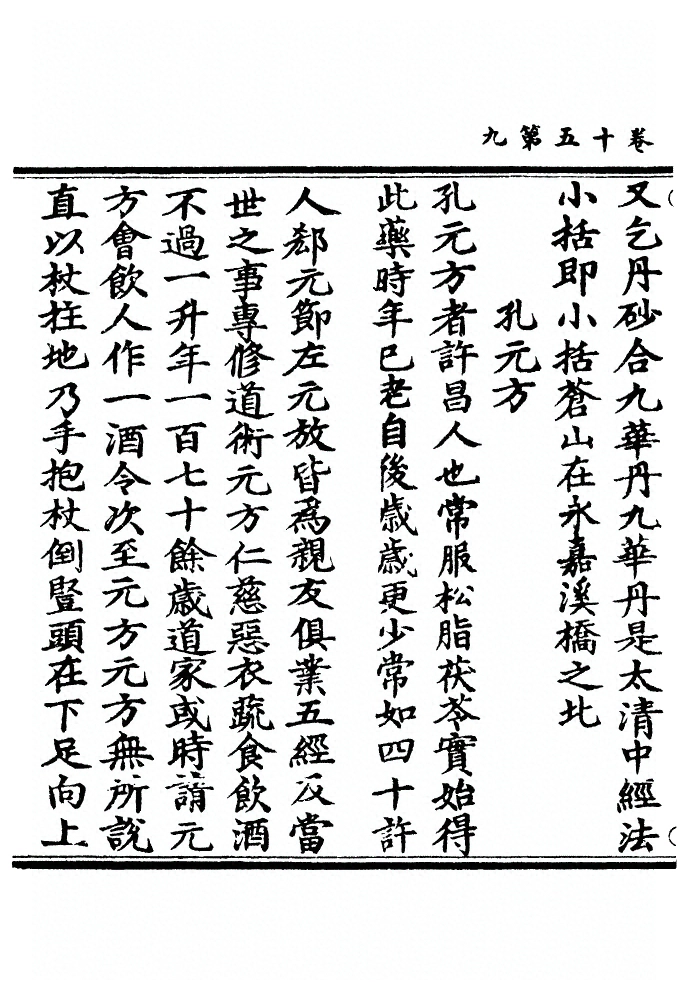 卷十五第九
又乞丹砂合九華丹九華丹是太清中經法
小括即小括蒼山在永嘉溪橋之北
孔元方
孔元方者許昌人也常服松脂茯苓實始得
此藥時年已老自後歲歲更少常如四十許
人郄元節左元放皆為親友俱業五經及當
世之事專修道術元方仁慈惡衣蔬食飲酒
不過一升年一百七十餘歲道家或時請元
方會飲人作一酒令次至元方元方無所說
直以杖拄地乃手抱杖倒豎頭在下足向上